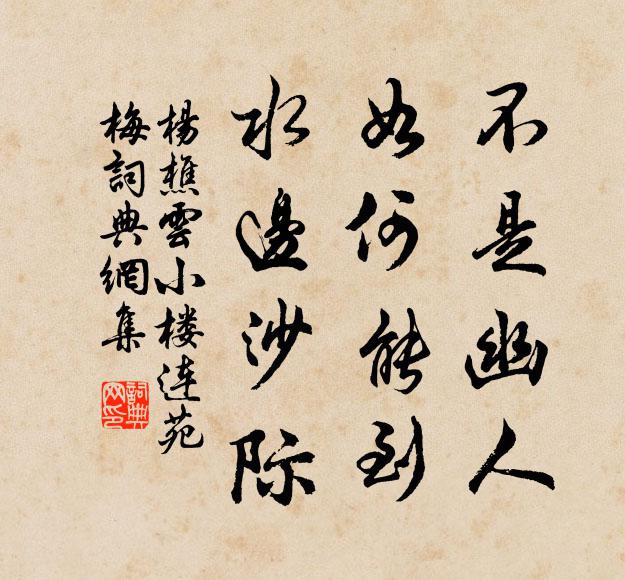 不是幽人
如何能到
水邊沙际
楊樵雲小楼連苑
梅詞典網集
詞典网印